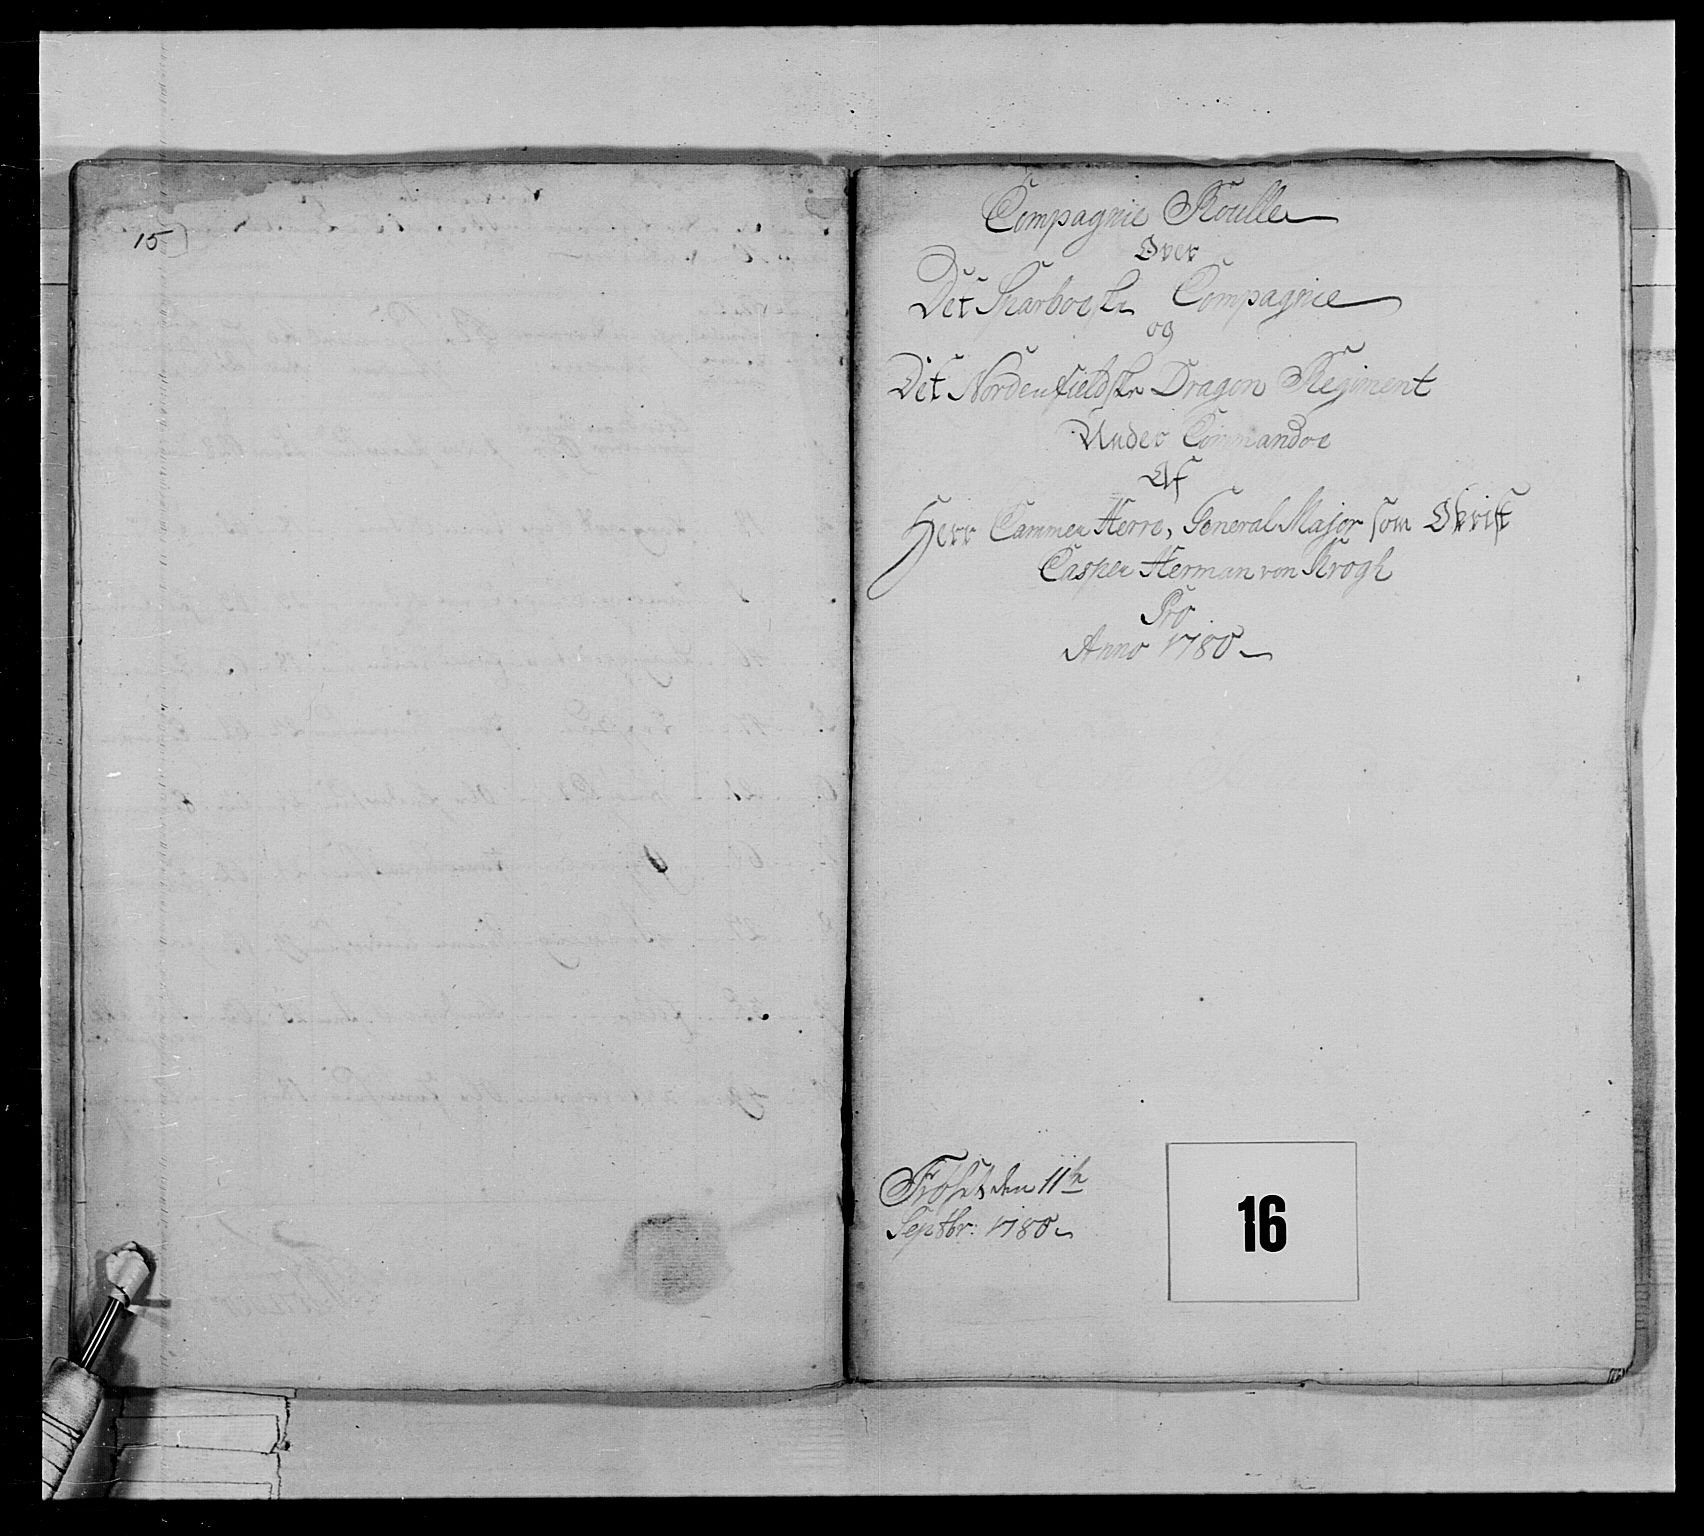 15)
Compagnie Roulle
Over
Det Sparboeske Compagnie
og
Det Nordenfieldske Dragon Regiment
Under Commandoe
Af
Herr Cammer Herre, General Major som Obrist
Casper Herman von Krogh
Pro
Anno 1780
den 11te
Septbr: 1780
16